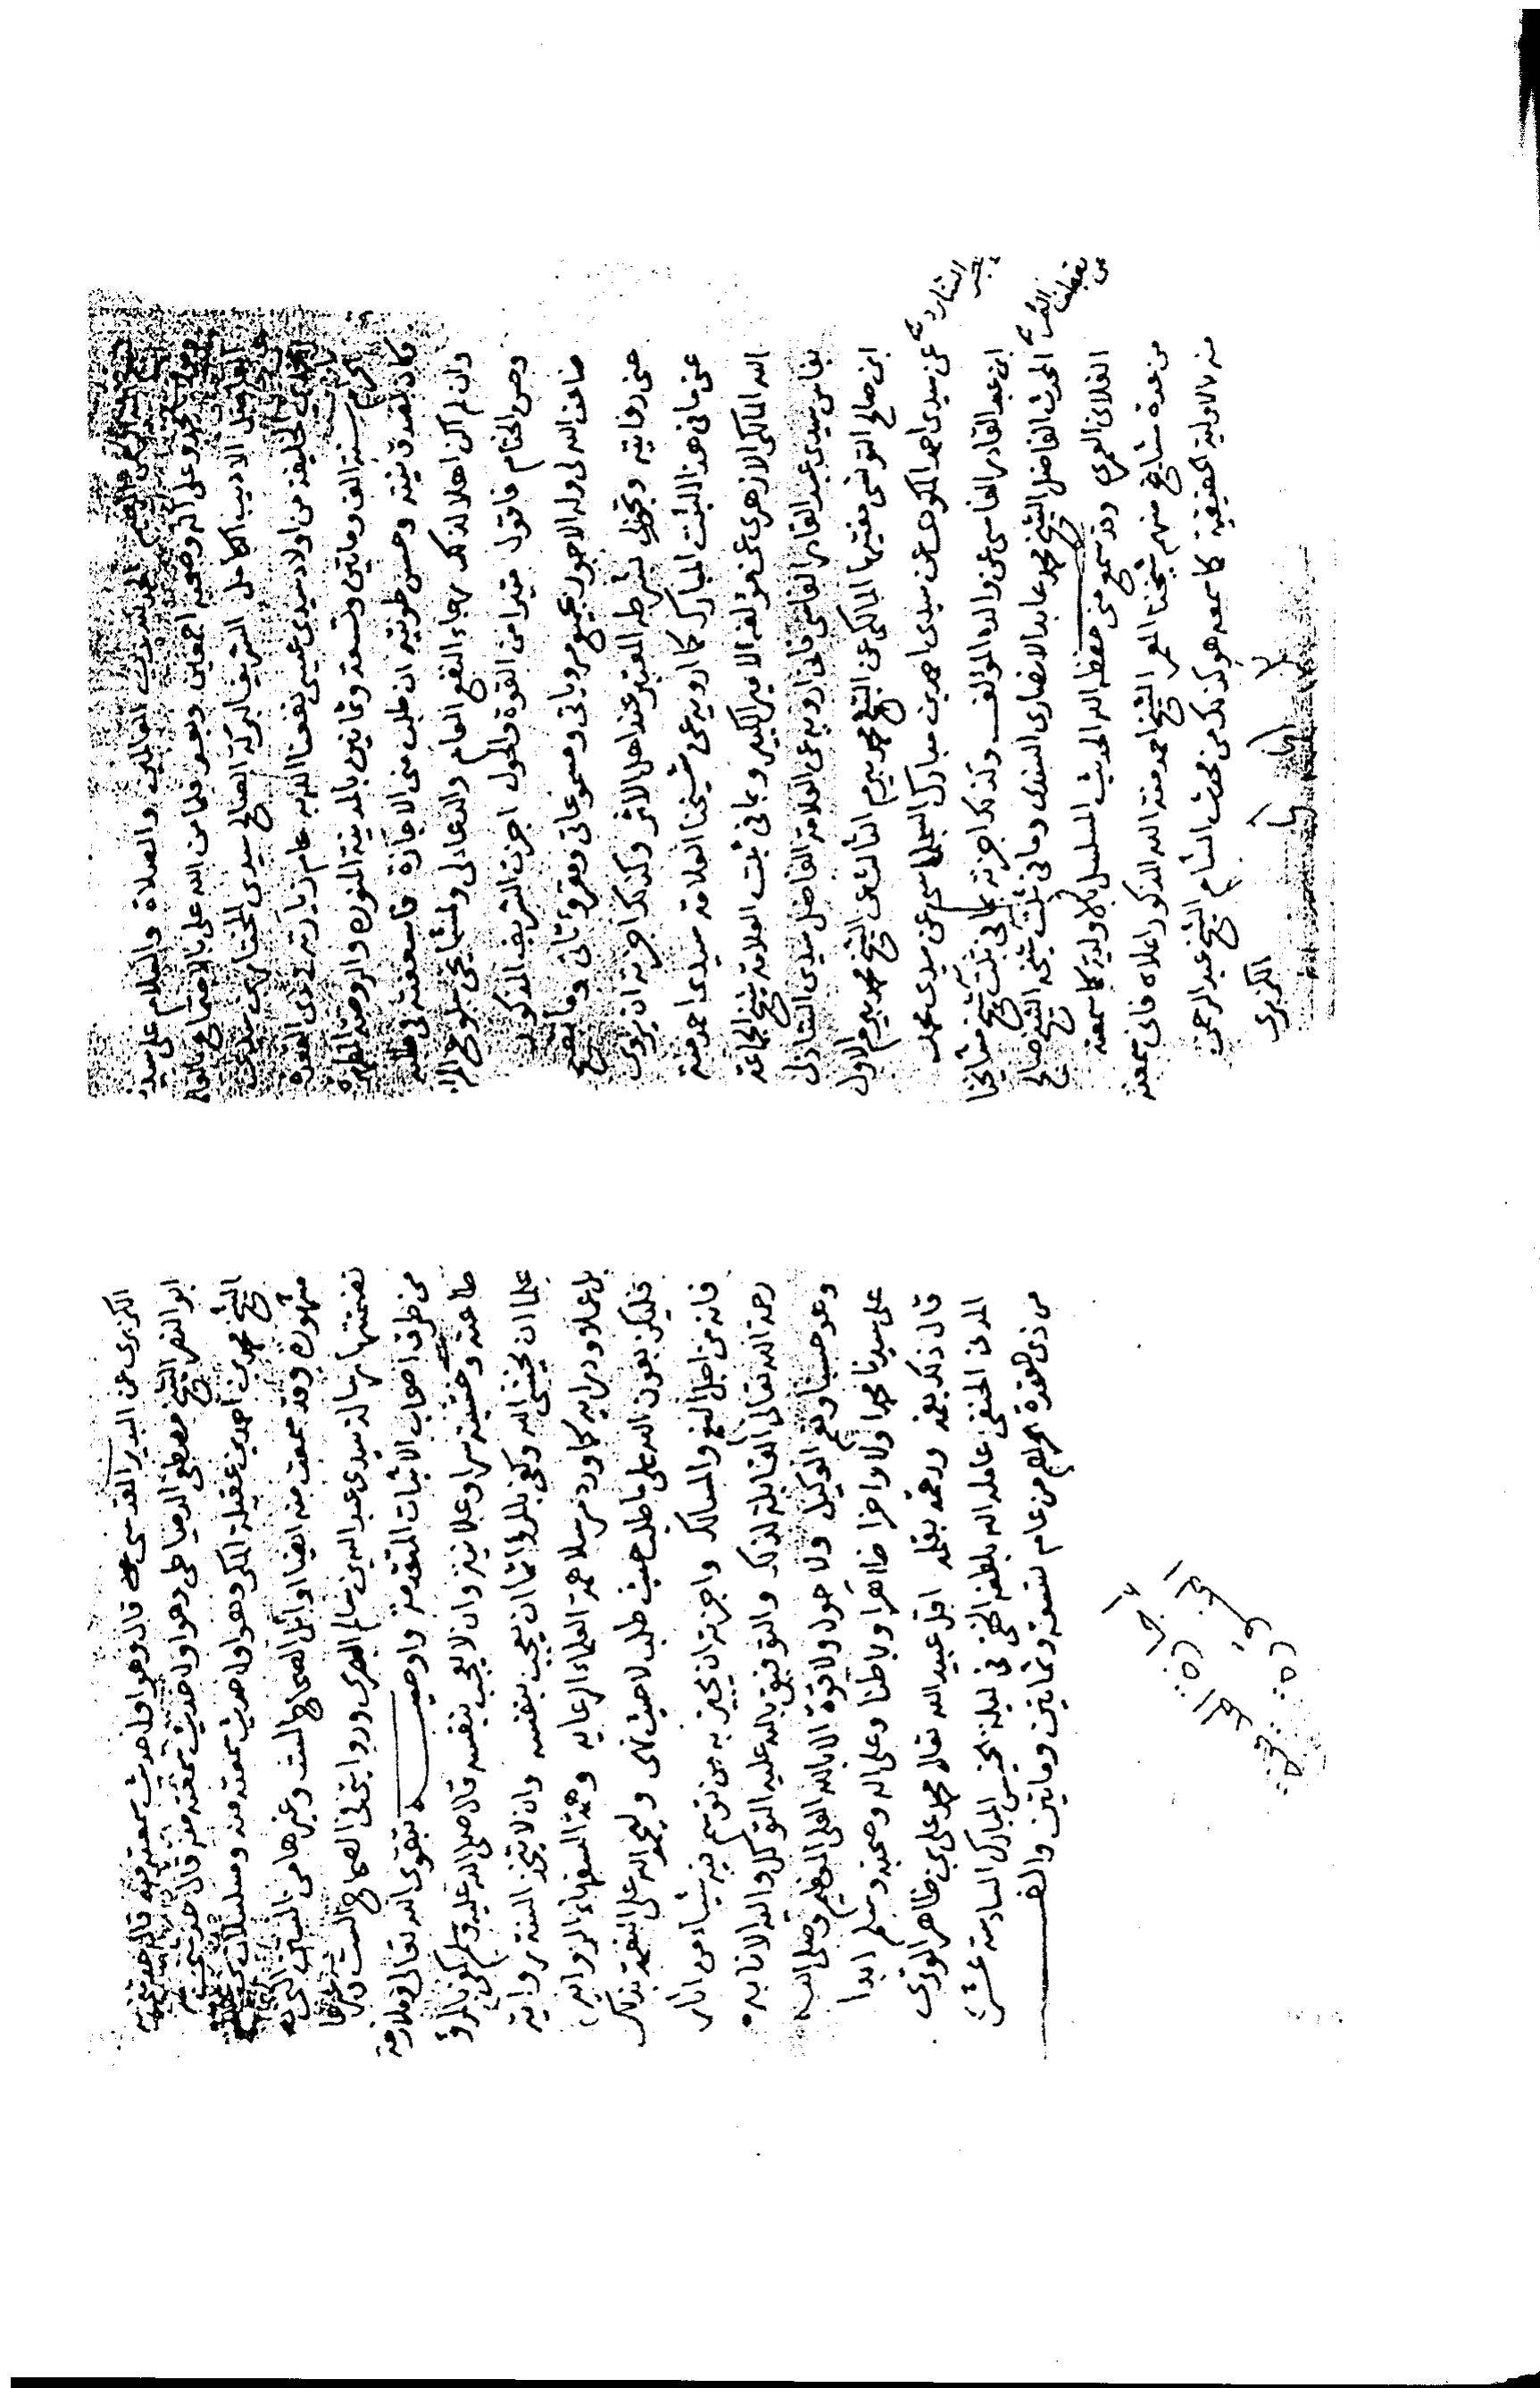 الحمد لله رب العالمين والصلاة والسلام على سيدنا
محمد وعلى آله وصحبه اجمعين وبعد فلما من الله علي بالاجتماع بالعالم
الفاضل الاديب الكامل الشريف البركة الصالح سيدى المختار بن سيدى
الخليفة من اولاد سيدى عيسى نفعنا الله به عام زيارته في ذى القعدة
الحرام سنة الف ومائتين وتسعة وثمانين بالمدينة المنوره والروضة المطهرة
وكان لصدق نيته وحسن طويته ان طلب منى الاجازة فاسعفته في طلبه
وان لم اكن اهلا لذلك رجاء النفع العام والدعا لى ولمشايخى ببلوغ المرام
وحسن الختام فاقول متبرا من القوة والحول اجزت الشريف المذكور
ضاعف الله لى وله الاجور بجميع مروياتى ومسموعاتى ومقروءاتى وما يصح
عنى روايته وتجوز بشرطه المعتبر عند اهل الاثر وكذلك اجزته ان يروى
عنى ما فى هذا الثبت المبارك كما ارويه عن شيخنا العلامة سيدى احمد منة
الله المالكى الازهرى عن مؤلفه الامير الكبير وبما فى ثبت العلامة شيخ الجماعة
بفاس سيدى عبد القادر الفاسى فانى ارويه عن العلامة الفاضل سيدى الشاذلى
ابن صالح التونسى مفتيها المالكى عن الشيخ محمد بيرم الثالث عن الشيخ محمد بيرم الاول
عن سيدى احمد المكودى عن سيدى احمد بن مبارك السجلماسى عن سيدى محمد
ابن عبد القادر الفاسى عن والده المؤلف وكذلك اجزته بما فى ثبت شيخ مشايخنا
المحدث الفاضل الشيخ محمد عابد الانصارى السندى وما فى ثبت شيخه الشيخ صالح
الفلانى العمرى وقد سمع منى حفظه الله الحديث المسلسل بالاولية كما سمعته
من عدة مشايخ منهم شيخنا المعمر الشيخ احمد منة الله المذكور اعلاه فانى سمعته
منه بالاولية الحقيقية كما سمعه هو كذلك من محدث الشام الشيخ عبد الرحمن
الكزبرى
الكزبرى عن البدير المقدسى قال وهو اول حديث سمعته منه قال حدثنى به
ابو النصر الشيخ مصطفى الدمياطى وهو اول حديث سمعته منه قال حدثنى به
الشيخ محمد بن احمد بن عقيلة المكى وهو اول حديث سمعته منه ومسلسلات ابن عقيلة
مشهورة وقد سمعت منه ايضا اوائل الصحاح الست وغيرها من
تضمنتها رسالة سيدى عبد الله بن سالم البصرى وروايتى الصحاح الست وغيرها
من طرق اصحاب الاثبات المتقدمة واوصيه بتقوى الله تعالى وملازمة
طاعته وخشيته سرا وعلانية وان لا يعجب بنفسه قال صلى الله عليه وسلم كفى بالمرؤ
علما ان يخشى الله وكفى بالمرؤ اثما ان يعجب بنفسه وان لا يتخذ السنة رواية
بل عملا ودراية كما ورد مرسلا همة العلماء الرعايه وهمة السفهاء الروايه
فليكن بعون الله على ما طلب حيث طلب لا حيث نهى وليحمد الله على النعمة بذلك
فانه من اجل المنح والمسالك واجزته ان يجيز به من توسم فيه شياء من اثار
رحمة الله تعالى القابلة لذلك والتوفيق بالله عليه التوكل والله الانابه
وهو حسبنا ونعم الوكيل ولا حول ولا قوة الا بالله العلى العظيم وصلى الله
على سيدنا محمد اولا واخرا ظاهرا وباطنا وعلى اله وصحبه وسلم ابدا
قال ذلك بفمه ورحمه بقلمه اقل عبيد الله تعالا محمد على بن ظاهر الوترى
المدنى الحنفى عامله الله بلطفه الخفى فى ليلة الخميس المبارك السادسة عشر
من ذى القعدة الحرام من عام تسعة وثمانين ومايتين والف